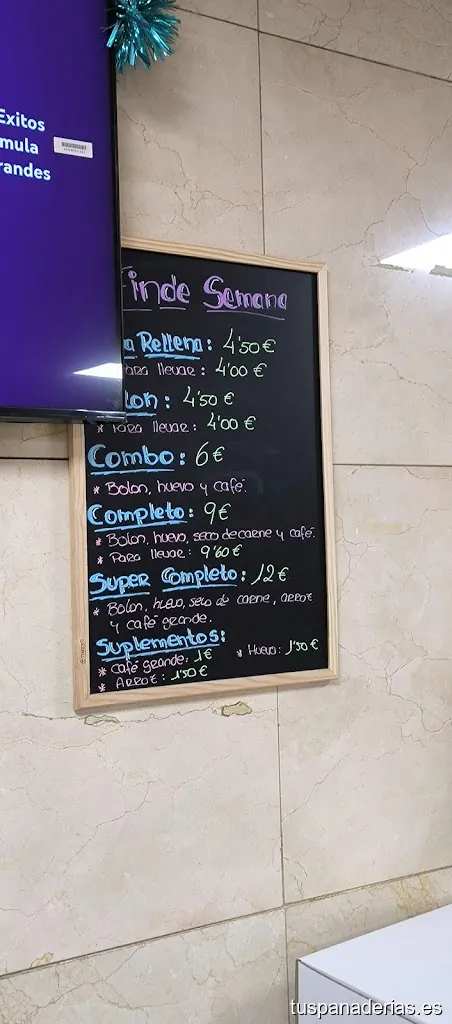 Exitos
mula
randes
Finde Semana
a Rellena: 4'50€
* Para llevar: 4'00 €
lon: 4'50 €
* Para llevar: 4'00 €
Combo: 6€
* Bolon, huevo y café.
Completo: 9€
* Bolon, huevo, seco de carne y café.
* Para llevar: 9'60€
Super Completo: 12€
* Bolon, huevo, seco de carne, arroz
y café grande.
Suplementos:
* café grande: 1€ * Huevo: 1'50 €
* Arroz: 1'50€
tuspanaderias.es